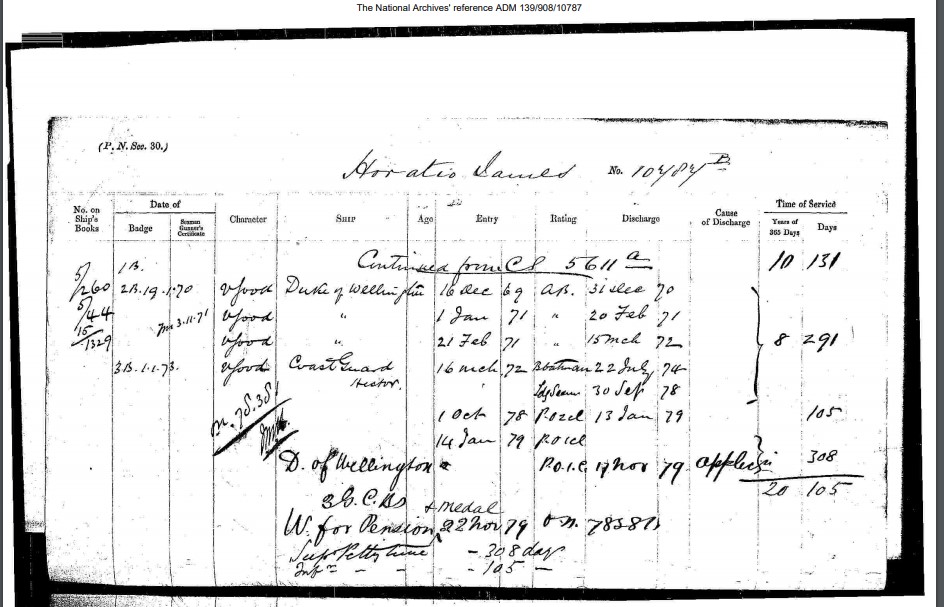 The National Archives' reference ADM 139/908/10787
(P. N. Sec. 30.)
Horatio James No. 10787 B
No. on Ship's Books Date of Badge Seaman Gunner's Certificate Character SHIP Age Entry Rating Discharge Cause of Discharge Time of Service Years of 365 Days Days
1B. Continued from CS 5611 a 10 131
5/260 2B.19.1.70 VGood Duke of Wellington 16 Dec 69 A.B. 31 Dec 70
5/44 3.11.71 VGood " 1 Jan 71 " 20 Feb 71
15/1329 VGood " 21 Feb 71 " 15 Mch 72 8 291
3B.1.1.73. VGood Coast Guard 16 Mch 72 Boatman 22 July 74
Hector. Ldg Seam 30 Sep 78
1 Oct 78 13 Jan 79 105
14 Jan 79
D. of Wellington P.O.1.C 17 Nov 79 308
20 105
3 G.C.Bs & Medal
W. for Pension 22 Nov 79 O.N. 78381
Supr Petty time - 308 days
Infr - - - 105 -